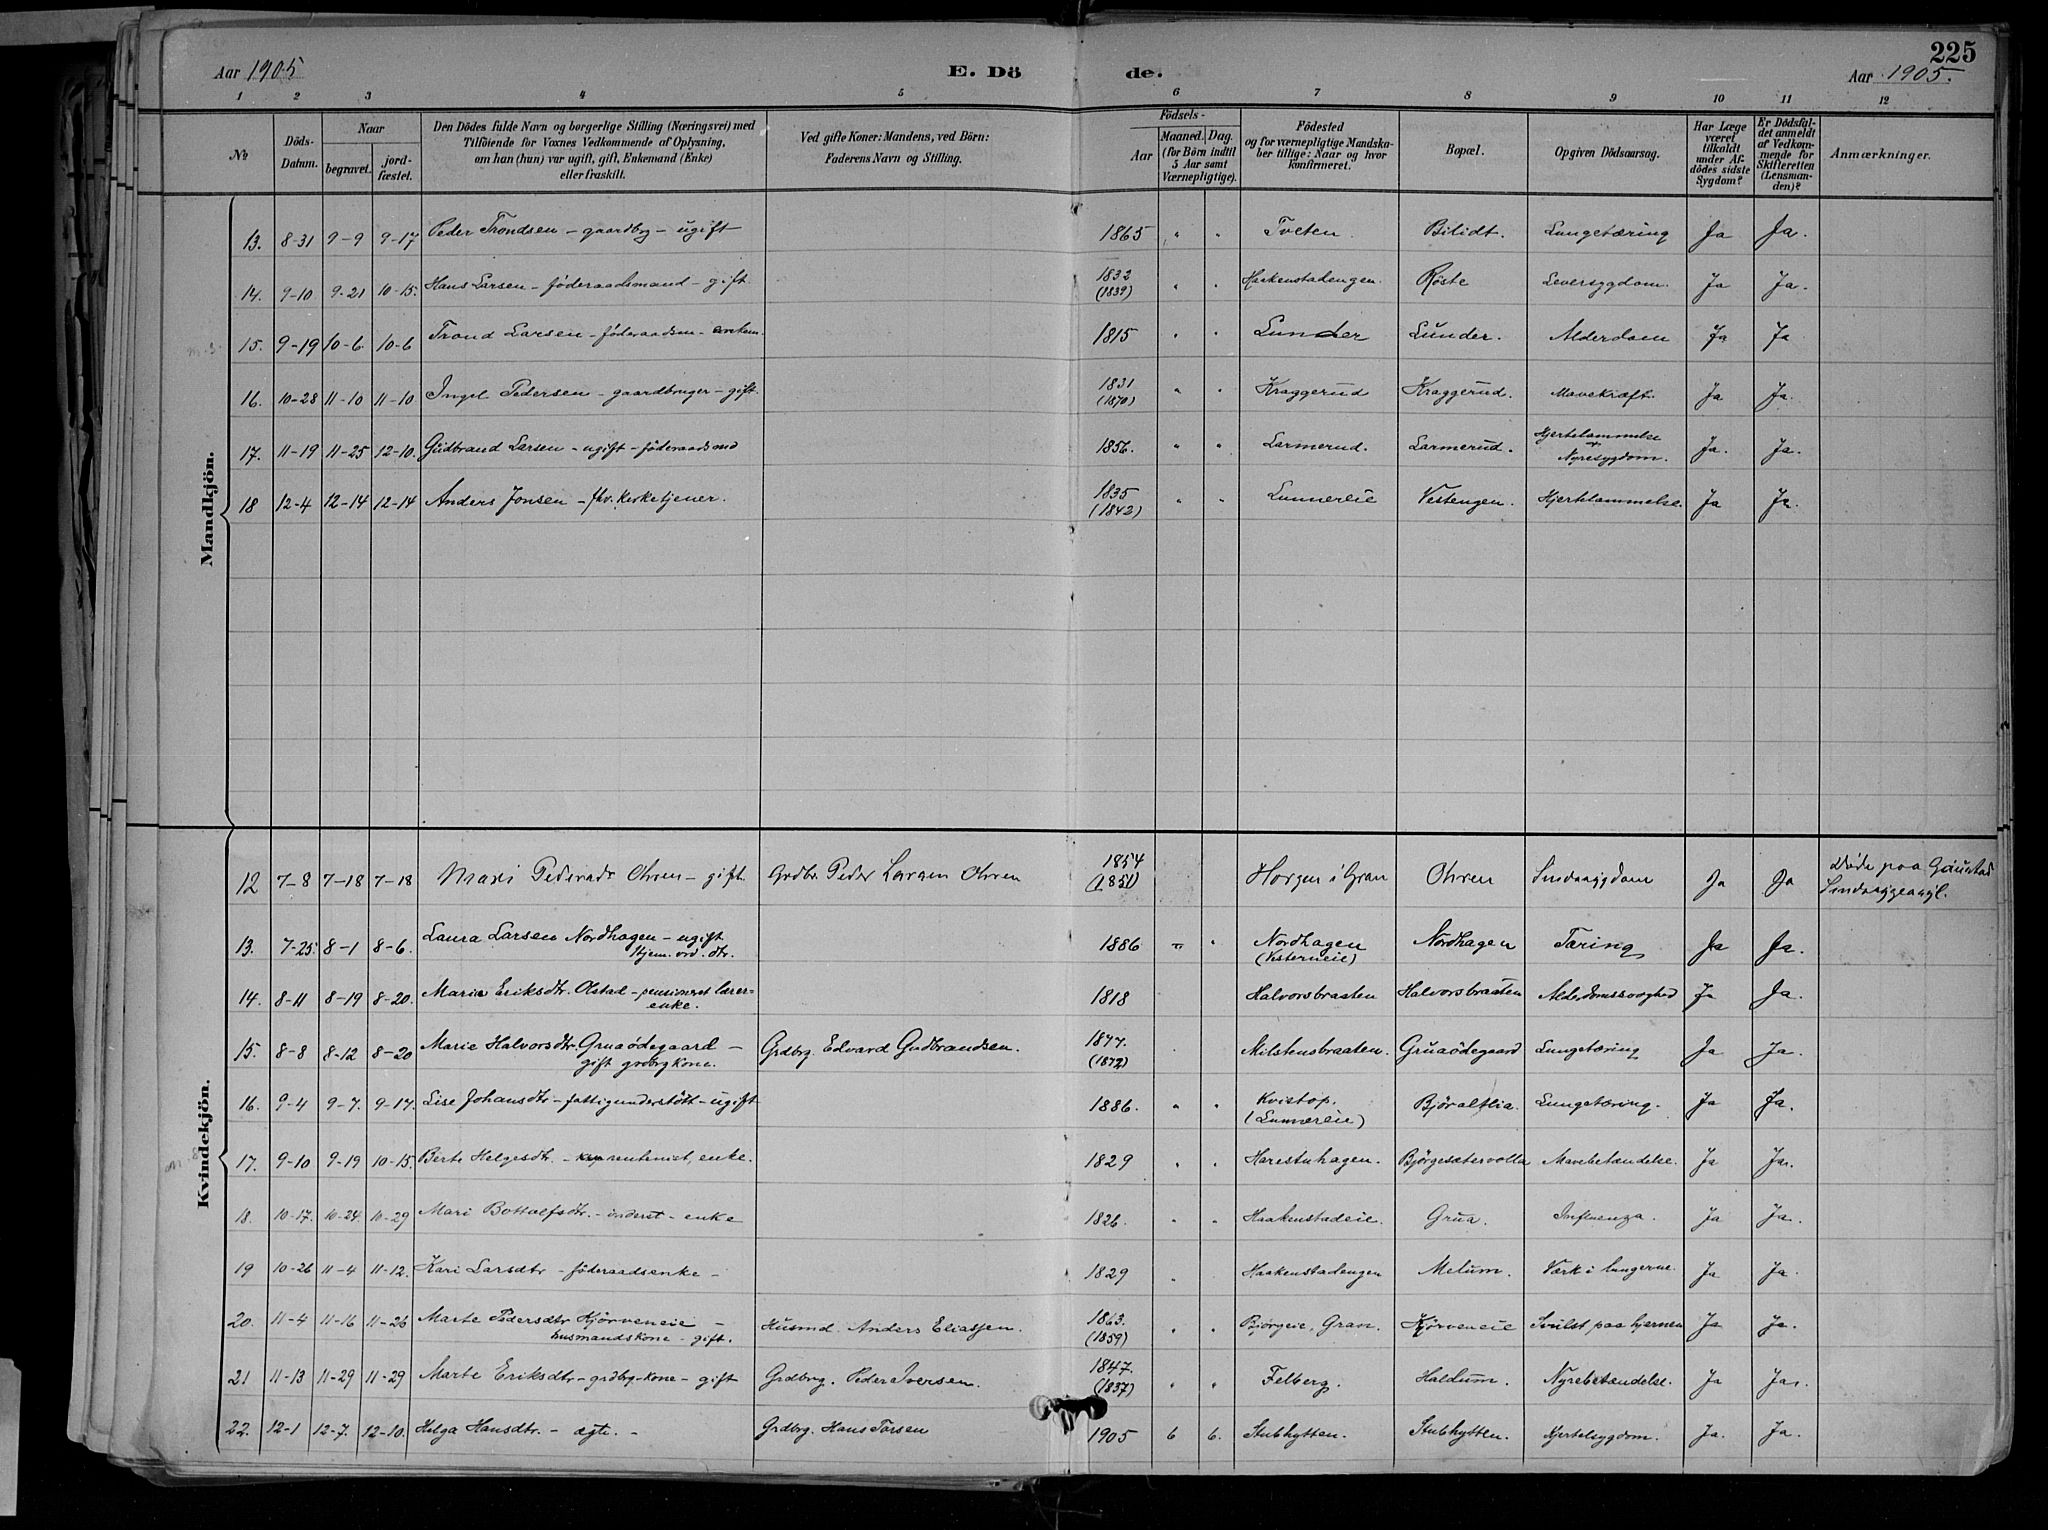 225
Aar 1905 E. Dö de. Aar 1905.
1 2 3 4 5 6 7 8 9 10 11 12
No
Döds-Datum.
Naar begravet. jord-fæstet.
Den Dödes fulde Navn og borgerlige Stilling (Næringsvei) med Tilföiende for Voxnes Vedkommende af Oplysning, om han (hun) var ugift, gift, Enkemand (Enke) eller fraskilt.
Ved gifte Koner: Mandens, ved Börn: Faderens Navn og Stilling.
Födsels- Aar Maaned. Dag. (for Börn indtil 5 Aar samt Værnepligtige).
Födested og for værnepligtige Mandskaber tillige: Naar og hvor konfirmeret.
Bopæl.
Opgiven Dödsaarsag.
Har Læge været tilkaldt under Afdödes sidste Sygdom?
Er Dödsfaldet anmeldt af Vedkommende for Skifteretten (Lensmanden)?
Anmærkninger.
Mandkjön.
13. 8-31 9-9 9-17 Peder Trondsen - gaardbrg - ugift 1865 " " Tveten. Bilidt. Lungetæring Ja Ja.
14. 9-10 9-21 10-15. Hans Larsen - föderaadsmand - gift 1832 (1839) " " Haakenstadengen. Röste Leversygdom. Ja Ja.
15. 9-19 10-6. 10-6 Trond Larsen - föderaadsm - enkem. 1815 " " Lunder Lunder. Alderdom Ja Ja
16. 10-28 11-10 11-10. Ingel Pedersen - gaardbruger - gift. 1831 (1870) " " Kraggerud Kraggerud. Mavekræft. Ja Ja.
17. 11-19 11-25 12-10. Gudbrand Larsen - ugift - föderaadsmd 1856. " " Larmerud. Larmerud. Hjertelammelse + Nyresygdom. Ja. Ja.
18 12-4 12-14 12-14 Anders Jonsen - fhv. Kirketjener. 1835 (1842) " " Lunnereie Vestengen. Hjertelammelse. Ja Ja.
Kvindekjön.
12 7-8 7-18 7-18 Mari Pedersdr Ohren - gift. Grdbr. Peder Larsen Ohren 1854 (1851) Horgen i Gran Ohren Sindssygdom Ja Ja Döde paa Gaustad Sindssygeasyl.
13. 7-25. 8-1 8-6. Laura Larsen Nordhagen - ugift Hjem.vrd. dtr. 1886 " " Nordhagen (Vestereneie) Nordhagen Tæring Ja Ja.
14. 8-11 8-19 8-20. Marie Eriksdtr. Olstad - pensioneret lærer-enke. 1818 Halvorsbraaten Halvorsbraaten Alderdomssvaghed Ja Ja.
15. 8-8 8-12 8-20 Marie Halvorsdtr. Gruaödegaard - gift grdbrgkone. Grdbrg. Edvard Gudbrandsen. 1877. (1872) Milstensbraaten. Gruaödegaard Lungetæring Ja Ja.
16. 9-4 9-7. 9-17. Lise Johansdtr - fattigunderstött - ugift 1886. " " Kvistop. (Lunnereie) Björaltlia. Lungetæring. Ja Ja.
17. 9-10 9-19 10-15. Berte Helgesdtr. - rentenist, enke. 1829 " " Harestuhagen. Björgesætervolla Mavebetændelse. Ja Ja.
18. 10-17. 10-24. 10-29 Mari Bottolfsdtr. - inderst - enke 1826. " " Haakenstadeie. Grua. Influenza. Ja Ja.
19 10-26 11-4 11-12. Kari Larsdtr - föderaadsenke - 1829 " Haakenstadengen Melum. Værk i lungerne. Ja Ja.
20. 11-4 11-16 11-26 Marte Pedersdtr Kjörveneie - husmandskone - gift. Husmd. Anders Eliassen. 1863. (1859) " " Björgeie, Gran. Kjörveneie Svulst paa hjernen Ja Ja.
21 11-13 11-29 11-29 Marte Eriksdtr - grdbrg-kone - gift Grdbrg. Peder Iversen. 1847. (1837) " " Felberg. Haldum. Nyrebetændelse. Ja Ja.
22. 12-1 12-7. 12-10. Helga Hansdtr. - ægte. - Grdbrg. Hans Torsen 1905 6 6. Stubhytten. Stubhytten. Hjertelsygdom. Ja. Ja.